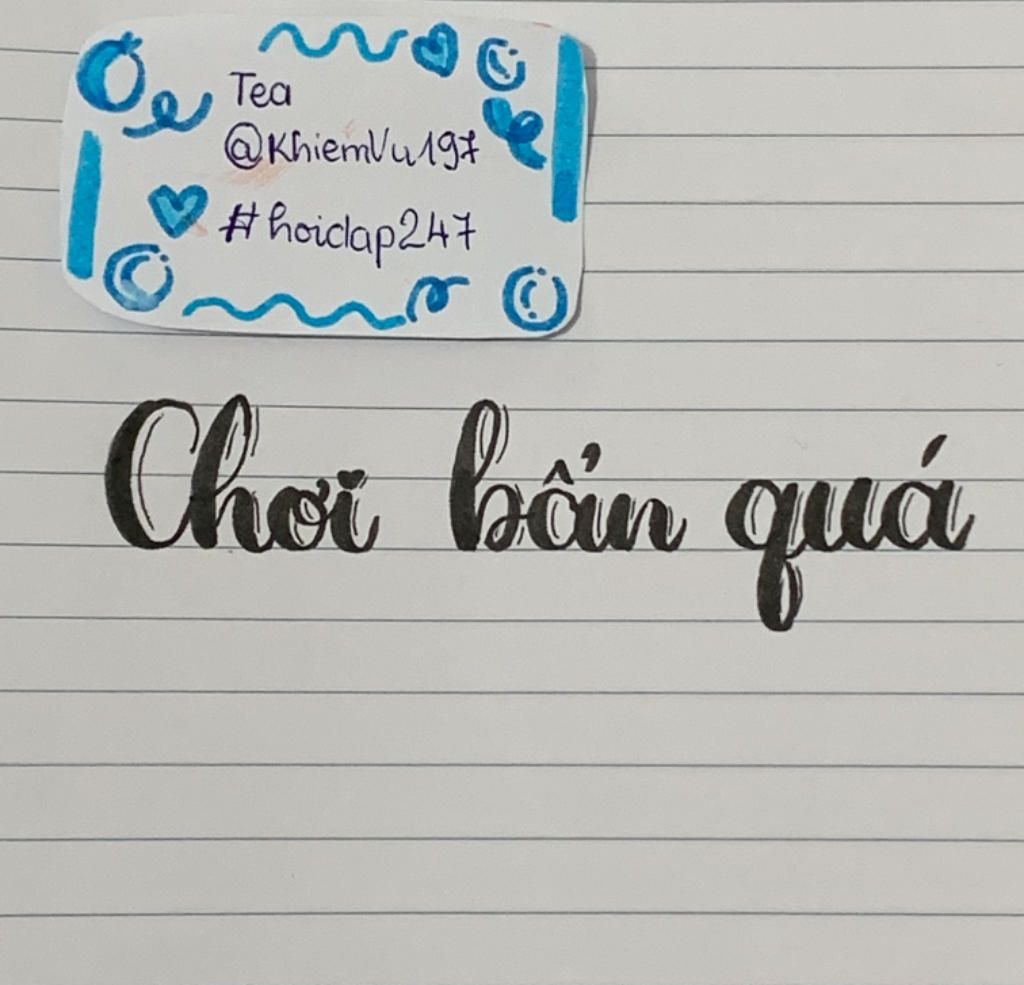 Tea
@KhiemVu197
#hoidap247
Chơi bẩn quá